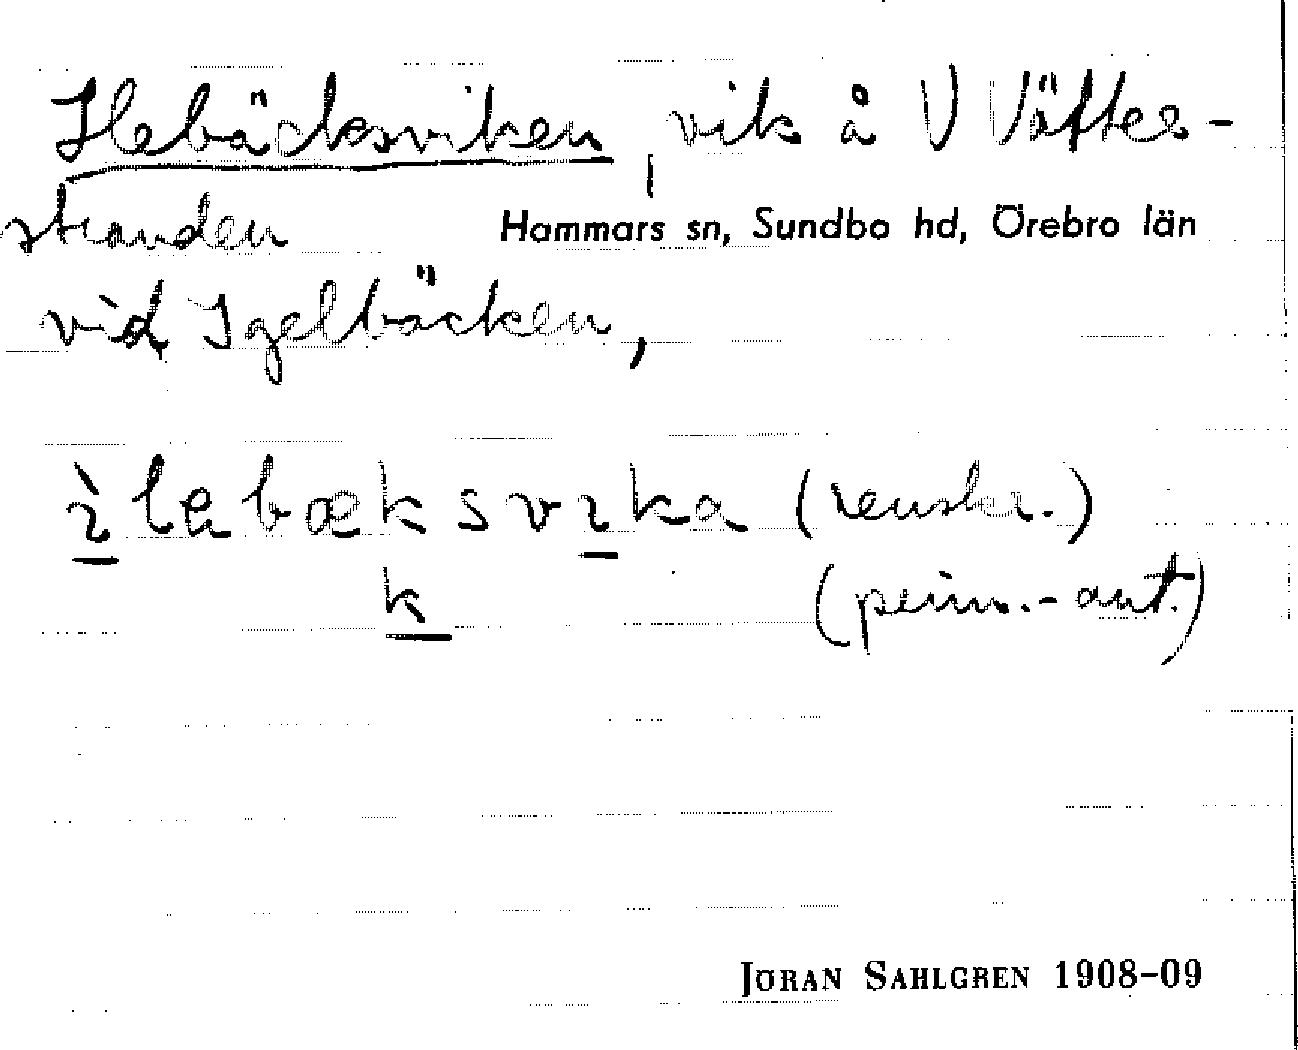 Ilebäcksviken, vik å V Vätter-
stranden
Hammars sn, Sundbo hd, Örebro län
vid Igelbäcken,
ìlebæksvika (renskr.)
k (prim.-ant.)
JÖRAN SAHLGREN 1908-09